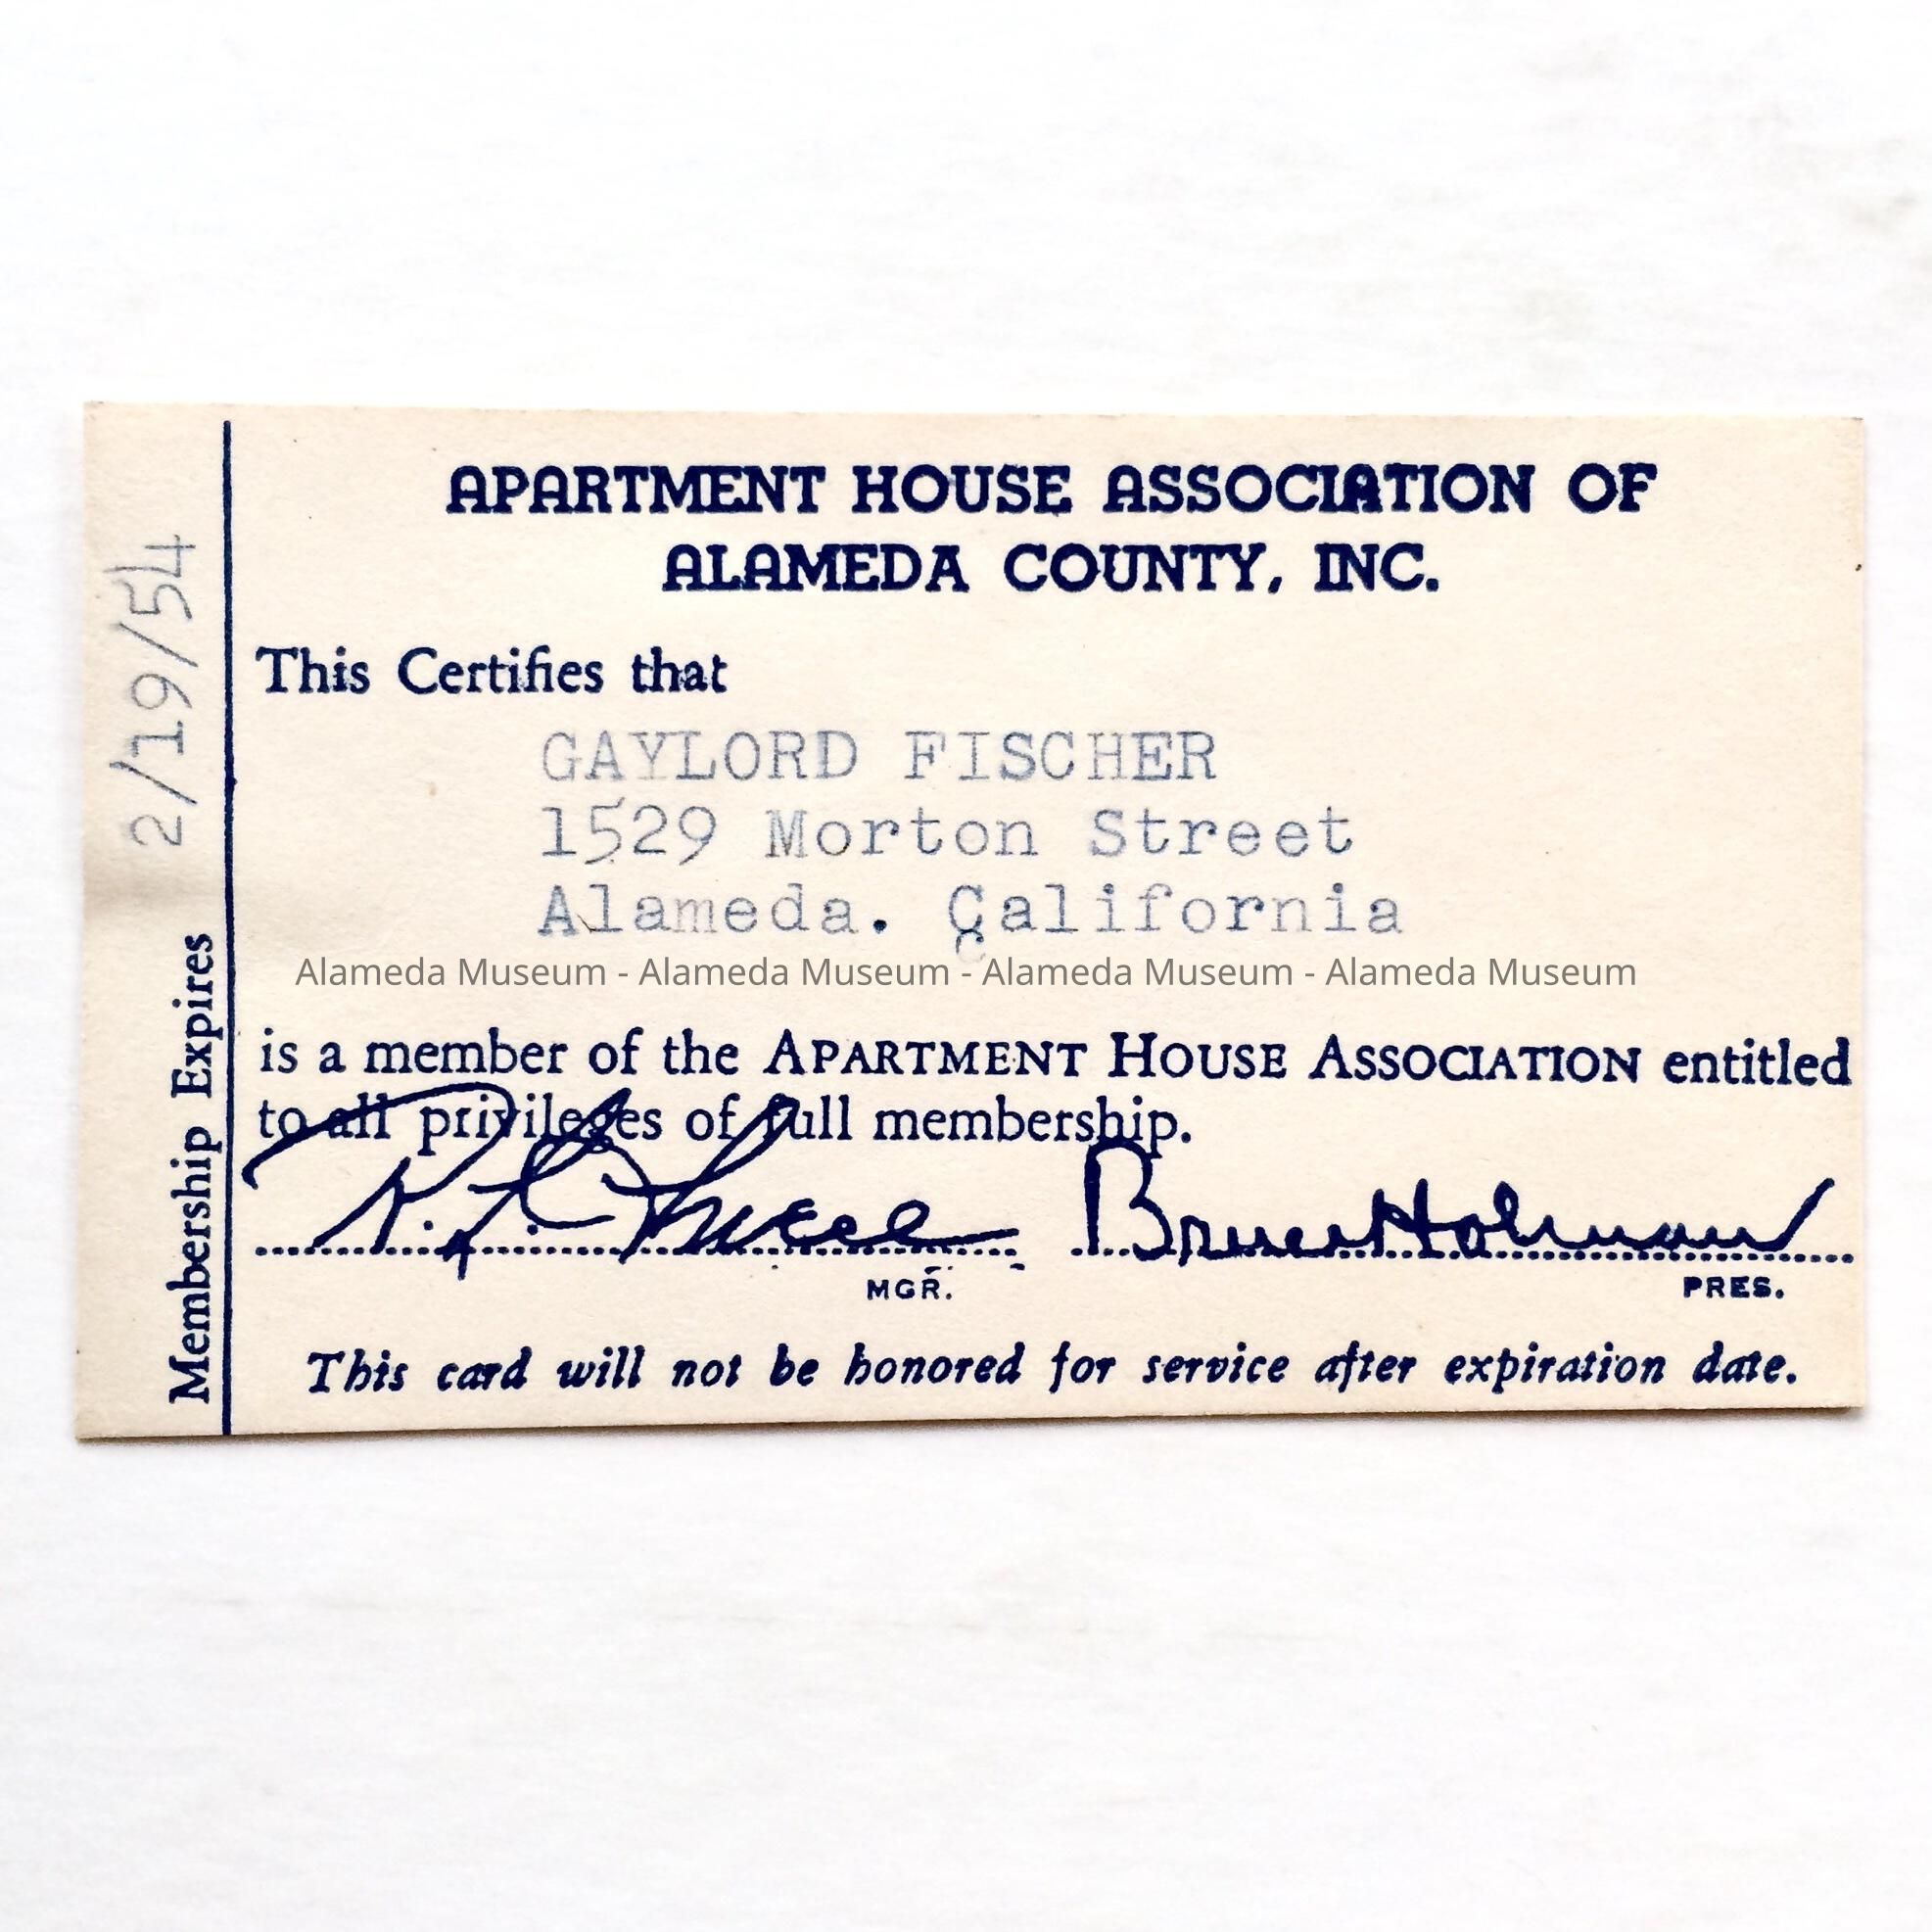 APARTMENT HOUSE ASSOCIATION OF
ALAMEDA COUNTY, INC.
This Certifies that
GAYLORD FISCHER
1529 Morton Street
Alameda. California
Alameda Museum - Alameda Museum - Alameda Museum - Alameda Museum
is a member of the APARTMENT HOUSE ASSOCIATION entitled
to all privileges of full membership.
Bruce Holman
MGR. PRES.
This card will not be honored for service after expiration date.
Membership Expires 2/19/54